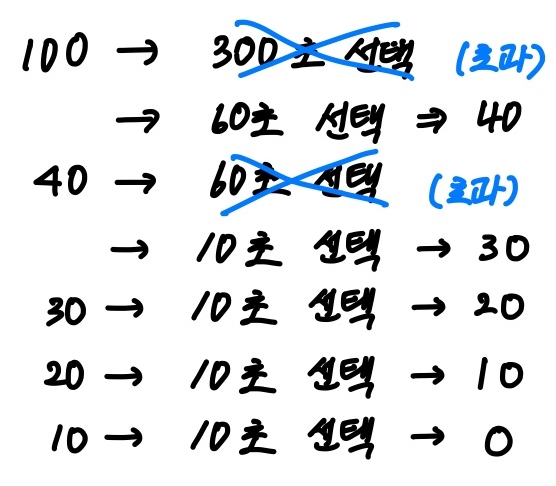 100 → 300초 선택 (초과)
→ 60초 선택 ⇒ 40
40 → 60초 선택 (초과)
→ 10초 선택 → 30
30 → 10초 선택 → 20
20 → 10초 선택 → 10
10 → 10초 선택 → 0